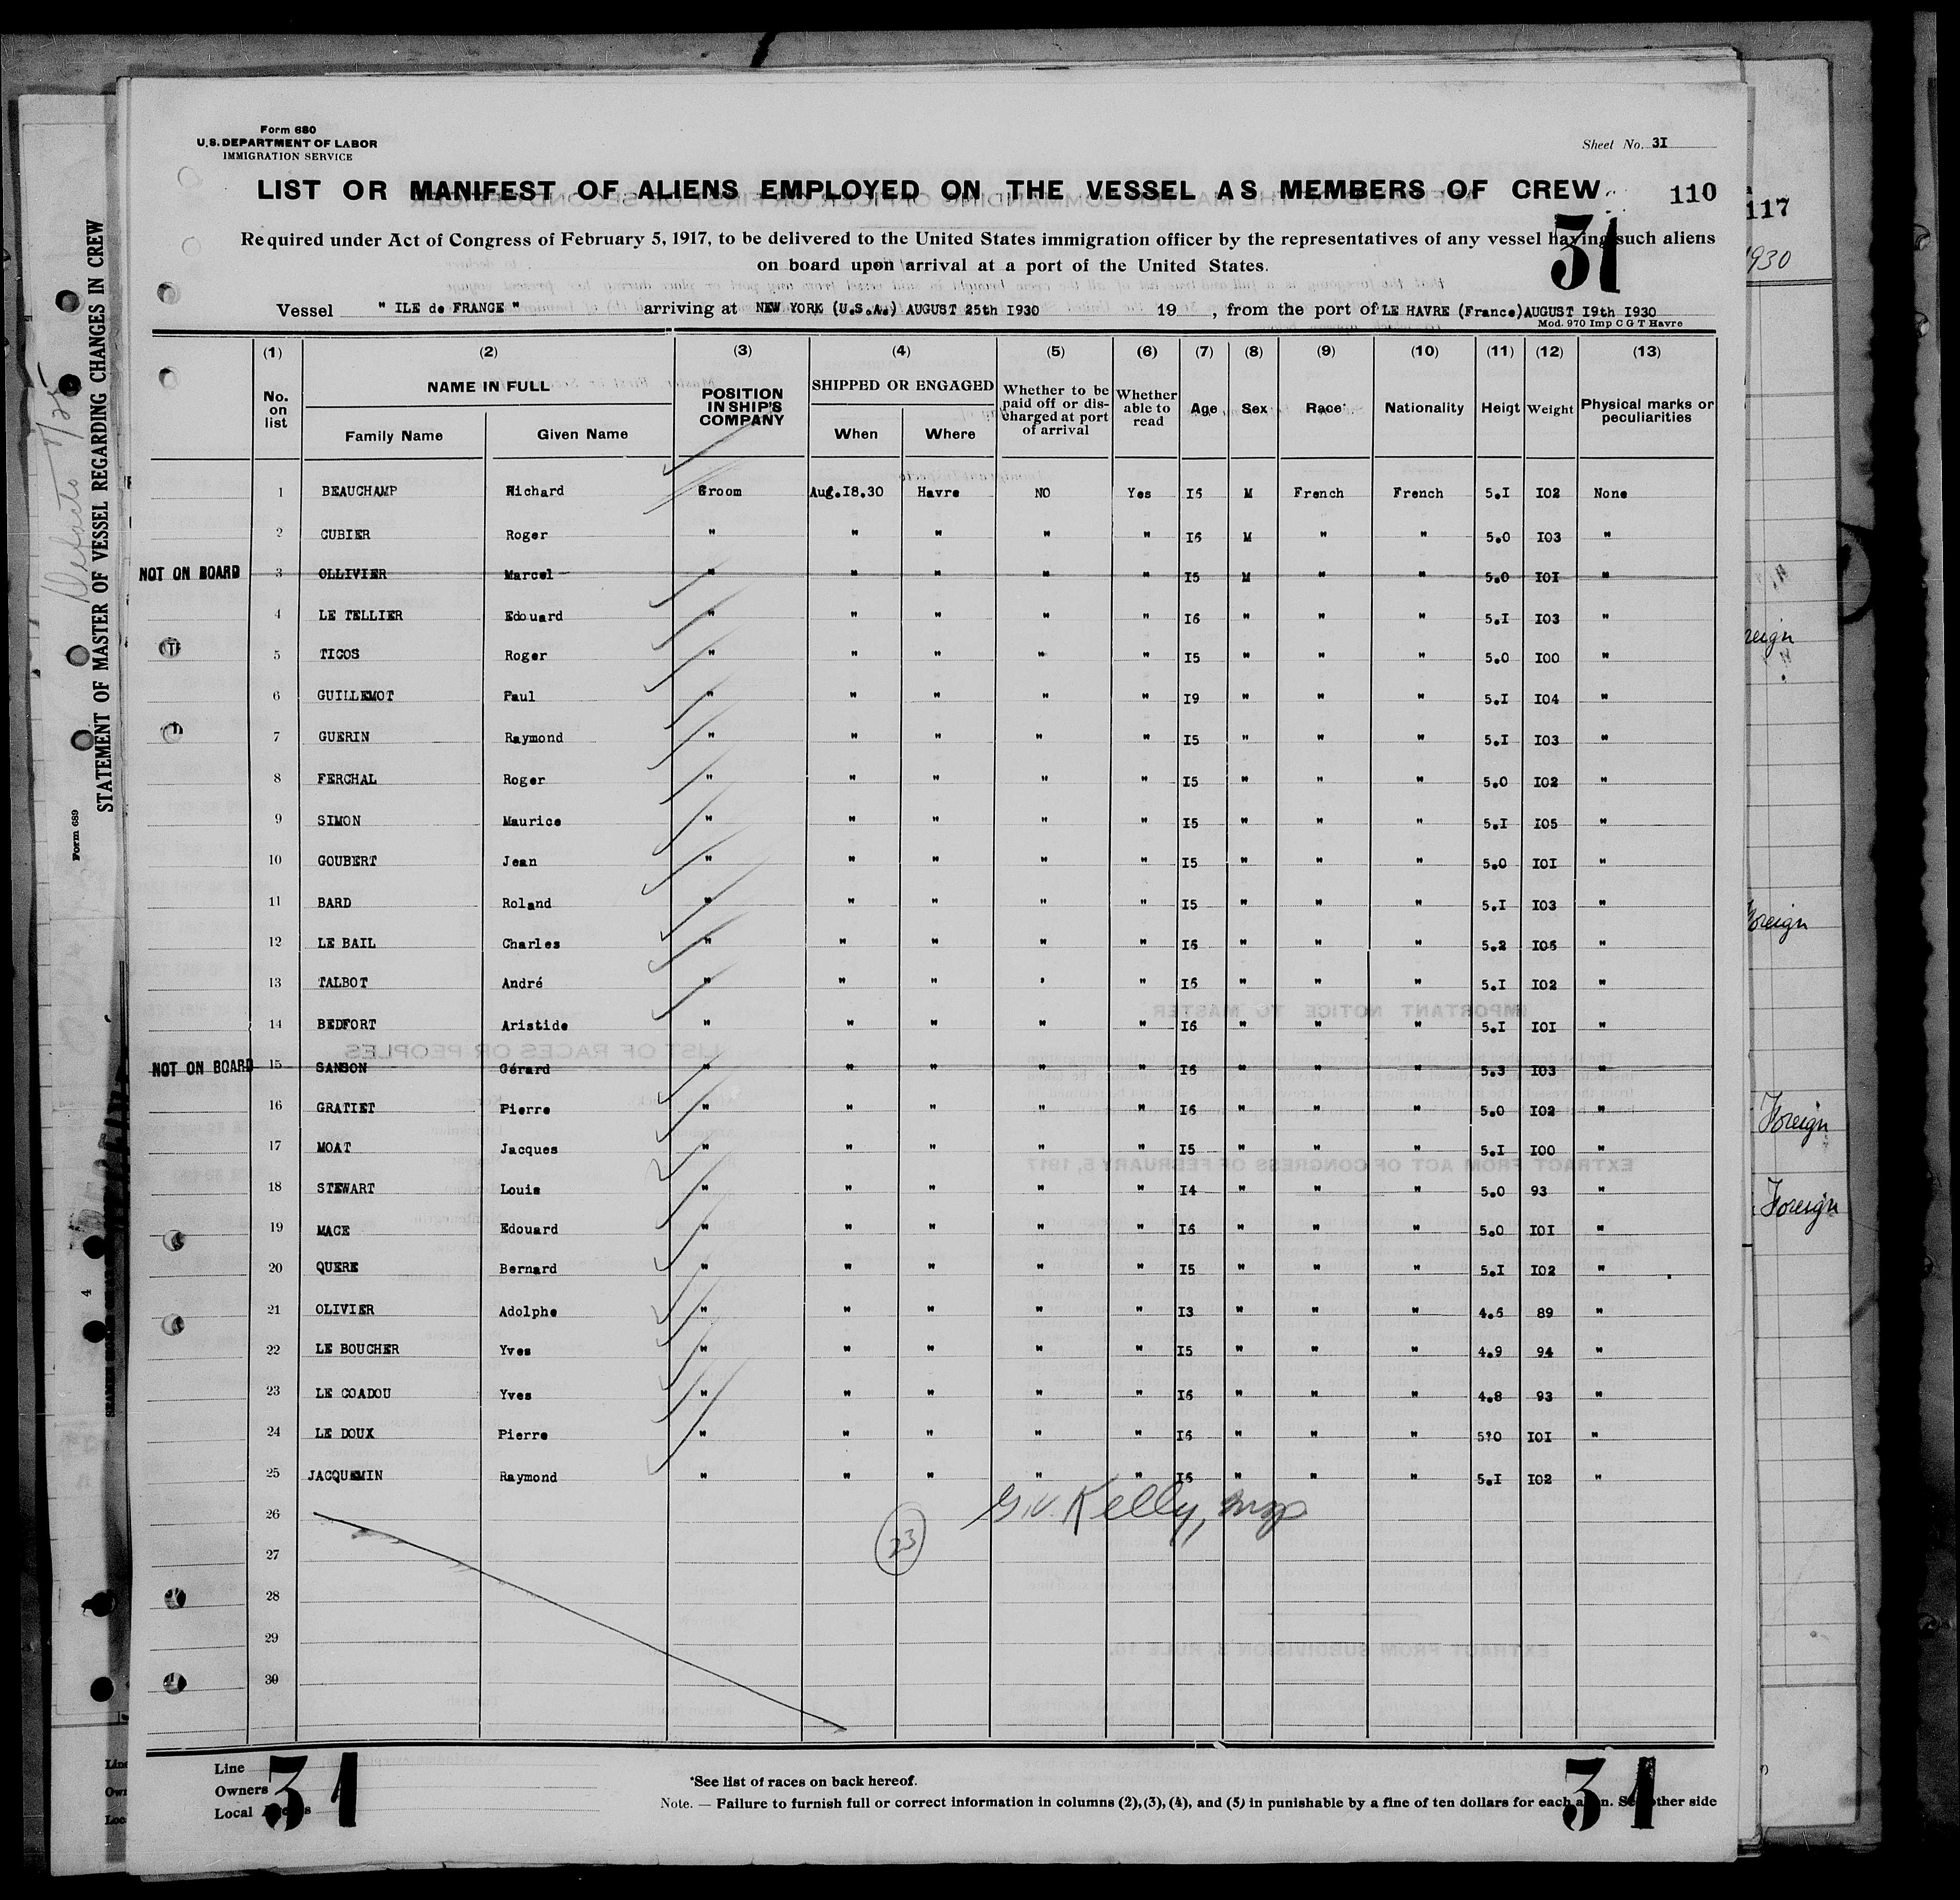 Form 680
U.S. DEPARTMENT OF LABOR
IMMIGRATION SERVICE
Sheet No. 3I
LIST OR MANIFEST OF ALIENS EMPLOYED ON THE VESSEL AS MEMBERS OF CREW
110
31
Required under Act of Congress of February 5, 1917, to be delivered to the United States immigration officer by the representatives of any vessel having such aliens
on board upon arrival at a port of the United States.
Vessel " ILE de FRANCE " arriving at NEW YORK (U.S.A.) AUGUST 25th I930 19 , from the port of LE HAVRE (France) AUGUST I9th I930
Mod. 970 Imp C G T Havre
(1) (2) (3) (4) (5) (6) (7) (8) (9) (10) (11) (12) (13)
No. on list NAME IN FULL Family Name Given Name POSITION IN SHIP'S COMPANY SHIPPED OR ENGAGED When Where Whether to be paid off or discharged at port of arrival Whether able to read Age Sex Race Nationality Heigt Weight Physical marks or peculiarities
1 BEAUCHAMP Richard Groom Aug.I8.30 Havre NO Yes I6 M French French 5.I I02 None
2 CUBIER Roger " " " " " I6 M " " 5.0 I03 "
NOT ON BOARD 3 OLLIVIER Marcel " " " " " I5 M " " 5.0 I0I "
4 LE TELLIER Edouard " " " " " I6 " " " 5.I I03 "
5 TICOS Roger " " " " " I5 " " " 5.0 I00 "
6 GUILLEMOT Paul " " " " " I9 " " " 5.I I04 "
7 GUERIN Raymond " " " " " I5 " " " 5.I I03 "
8 FERCHAL Roger " " " " " I5 " " " 5.0 I02 "
9 SIMON Maurice " " " " " I5 " " " 5.I I05 "
10 GOUBERT Jean " " " " " I5 " " " 5.0 I0I "
11 BARD Roland " " " " " I5 " " " 5.I I03 "
12 LE BAIL Charles " " " " " I6 " " " 5.2 I06 "
13 TALBOT André " " " ' " I6 " " " 5.I I02 "
14 BEDFORT Aristide " " " " " I6 " " " 5.I I0I "
NOT ON BOARD 15 SANSON Gérard " " " " " I6 " " " 5.3 I03 "
16 GRATIET Pierre " " " " " I6 " " " 5.0 I02 "
17 MOAT Jacques " " " " " I5 " " " 5.I I00 "
18 STEWART Louis " " " " " I4 " " " 5.0 93 "
19 MACE Edouard " " " " " I6 " " " 5.0 I0I "
20 QUERE Bernard " " " " " I5 " " " 5.I I02 "
21 OLIVIER Adolphe " " " " " I3 " " " 4.6 89 "
22 LE BOUCHER Yves " " " " " I5 " " " 4.9 94 "
23 LE COADOU Yves " " " " " I6 " " " 4.8 93 "
24 LE DOUX Pierre " " " " " I6 " " " 5?0 I0I "
25 JACQUEMIN Raymond " " " " " I6 " " " 5.I I02 "
26
Kelly,
23
27
28
29
30
Line
Owners
Local Agents
31
*See list of races on back hereof.
Note. — Failure to furnish full or correct information in columns (2), (3), (4), and (5) in punishable by a fine of ten dollars for each alien. See other side
31
STATEMENT OF MASTER OF VESSEL REGARDING CHANGES IN CREW
Form 689
4
117
1930
reign
Foreign
Foreign
Foreign